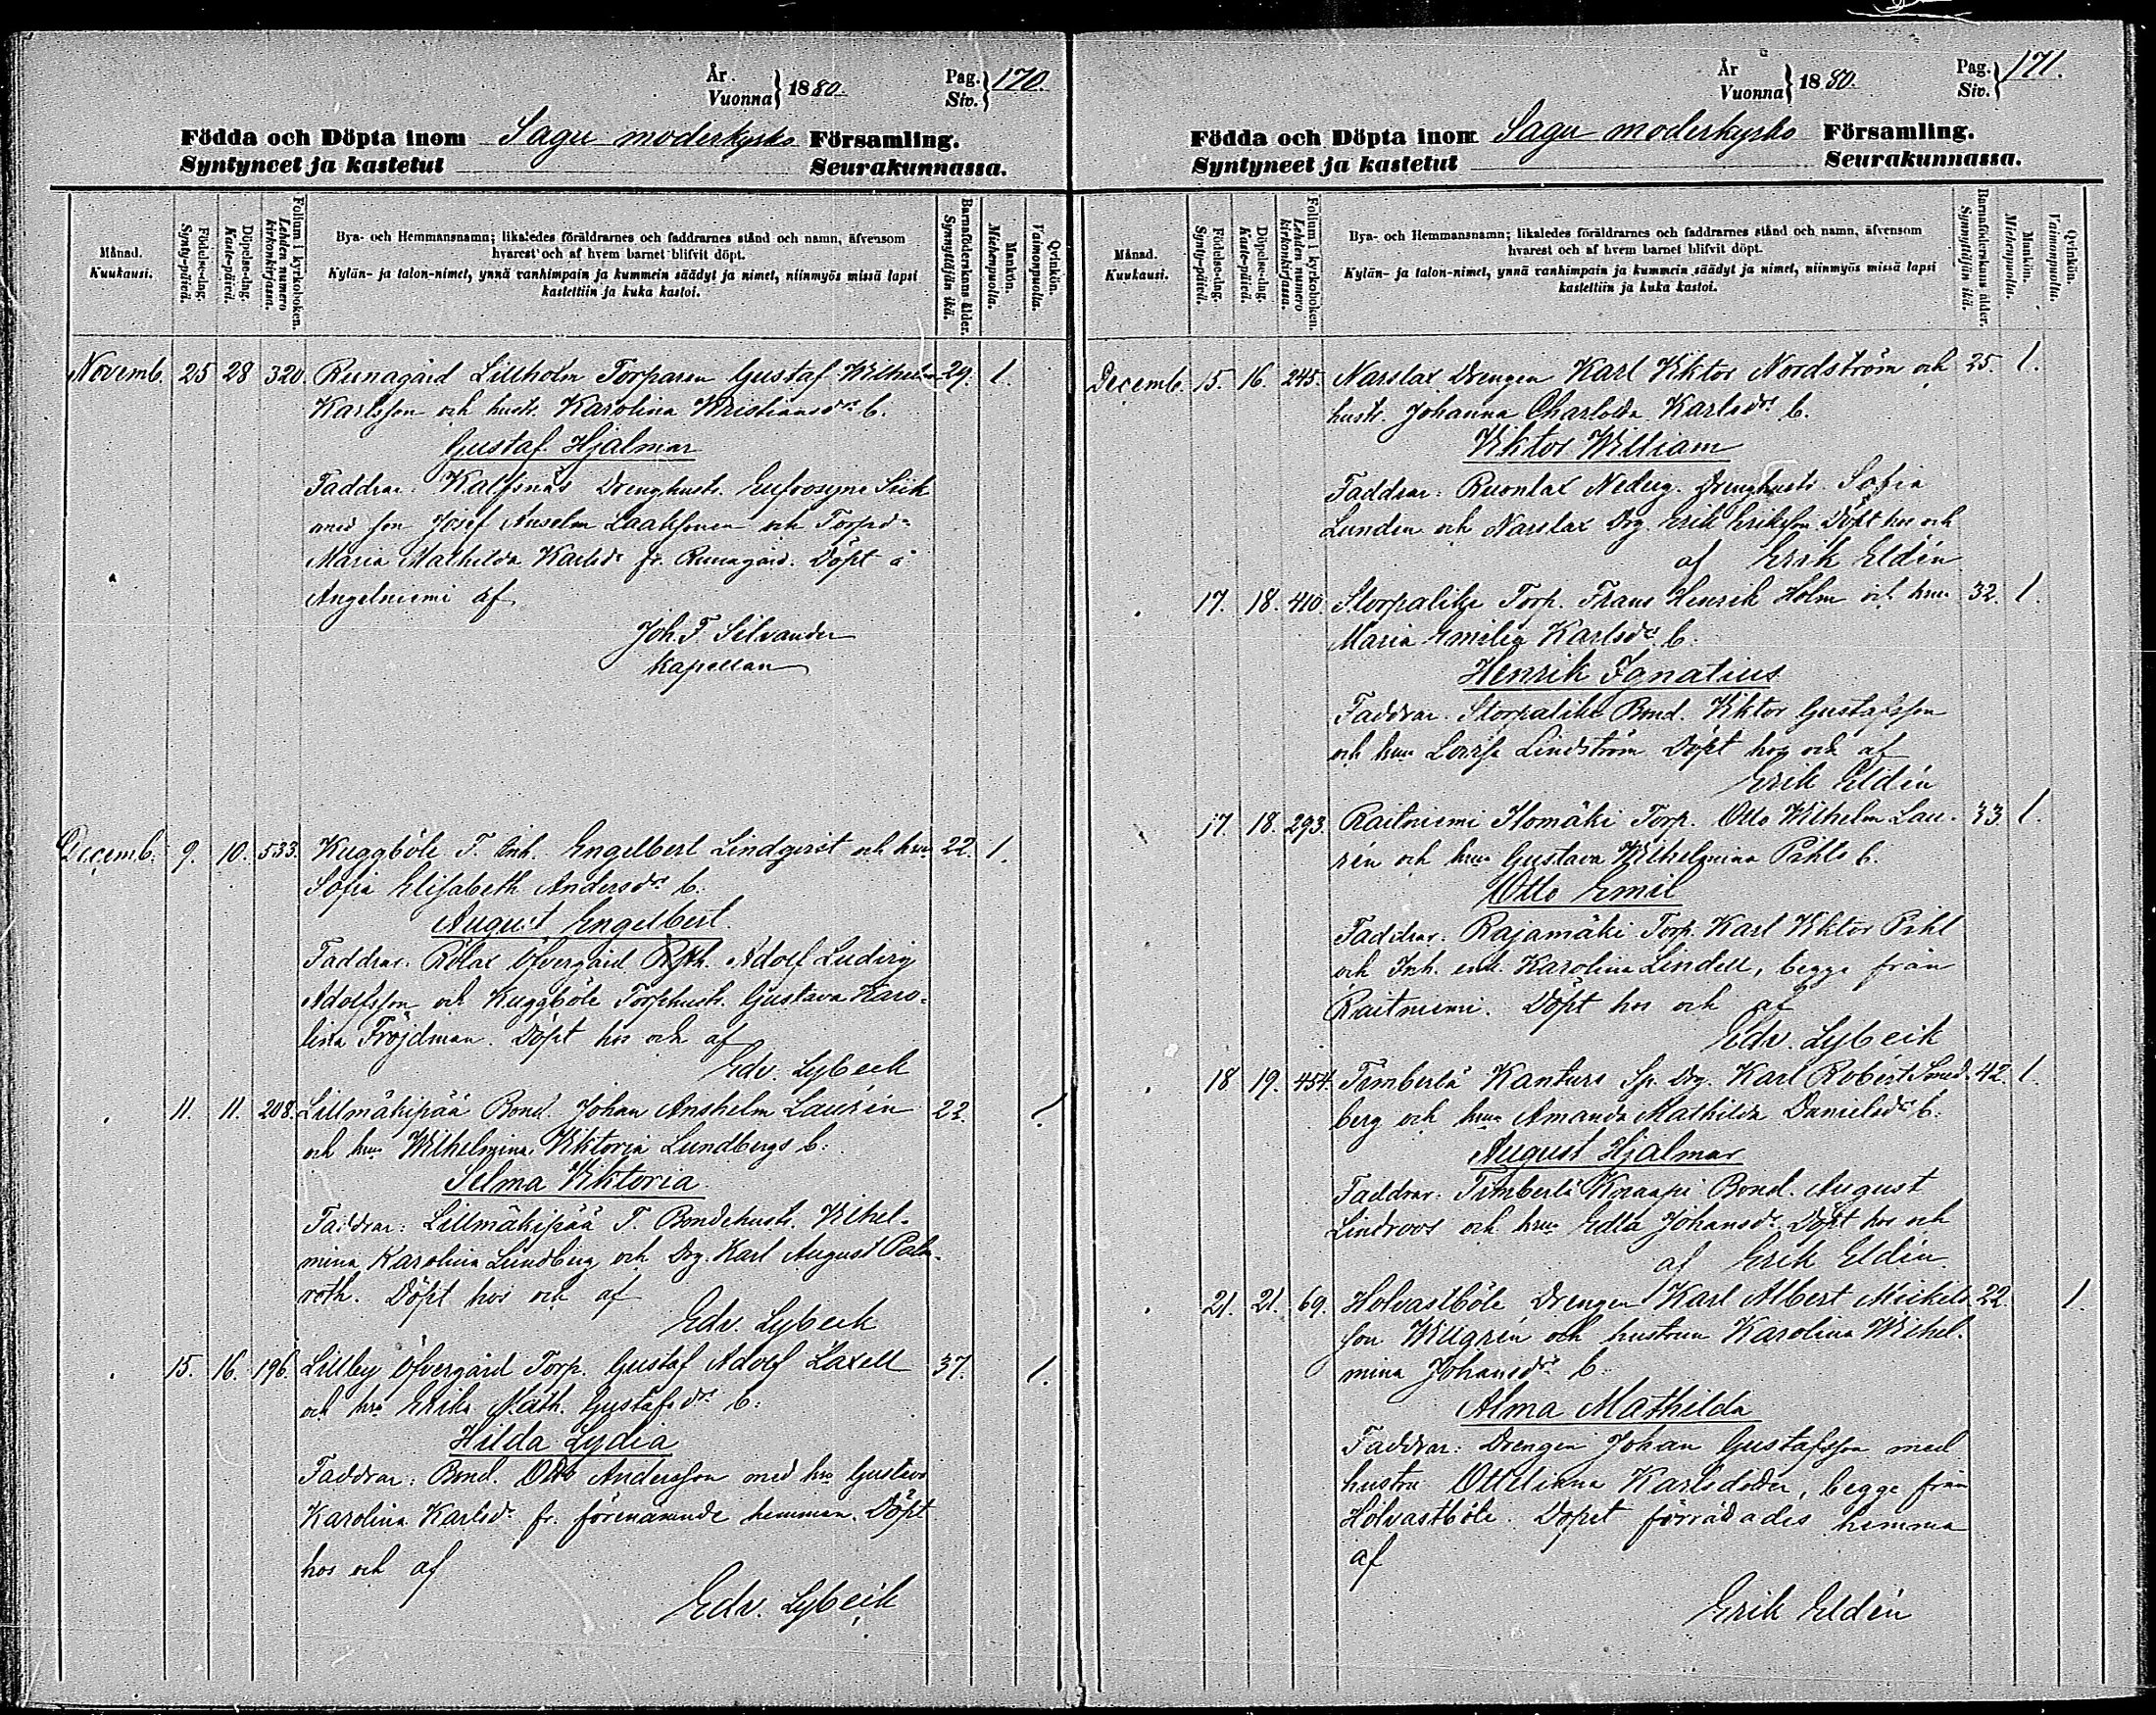 År
Vuonna } 1880.
Pag.
Siv. } 170.
Födda och Döpta inom Sagu moderkyrko Församling.
Syntyneet ja kastetut Seurakunnassa.
Månad.
Kuukausi.
Födelse-dag.
Synty-päivä.
Döpelse-dag.
Kaste-päivä.
Folium i kyrkoboken.
Lehden numero kirkonkirjassa.
Bya- och Hemmansnamn; likaledes föräldrarnes och faddrarnes stånd och namn, äfvensom
hvarest och af hvem barnet blifvit döpt.
Kylän- ja talon-nimet, ynnä vanhimpain ja kummein säädyt ja nimet, niinmyös missä lapsi
kastettiin ja kuka kastoi.
Barnaföderskans ålder.
Synnyttäjän ikä.
Mankön.
Miehenpuolia.
Qvinkön.
Vaimonpuolia.
Novemb. 25 28 320. Runagård Lillholm Torparen Gustaf Wilhelm 29. 1.
Karlsson och hustr. Karolina Kristiansdr b.
Gustaf Hjalmar
Faddrar: Kalfsnäs Drenghustr. Eufrosyne Siik
med son Josef Anselm Laaksonen och Torpd=
Maria Mathilda Karlsdr fr. Runagård. Döpt i
Angelniemi af
Joh. F. Silvander
Kapellan
Decemb. 9. 10. 533. Kuggböle T. Inh. Engelbert Lindqvist och hru 22. 1.
Sofia Elisabeth Andersdr b.
August Engelbert.
Faddrar: Rölax Öfvergård Adolf Ludvig
Adolfsson och Kuggböle Torphustr. Gustava Karo-
lina Fröjdman. Döpt hos och af
Edv. Lybeck
11. 11. 208. Lillmäkipää Bond. Johan Anshelm Laurén 22. 1.
och hru Wilhelmina Viktoria Lundbergs b:
Selma Viktoria
Faddrar: Lillmäkipää T. Bondehustr. Vilhel-
mina Karolina Lundberg och Drg. Karl August Palm-
roth. Döpt hos och af
Edv. Lybeck
15. 16. 196. Lillby Öfvergård Torp. Gustaf Adolf Laxell 37. 1.
och hru Erika Math. Gustafsdr b:
Hilda Lydia
Faddrar: Bond. Otto Andersson med hru Gustava
Karolina Karlsdr fr. förenämnde hemman. Döpt
hos och af
Edv. Lybeck
År
Vuonna } 1880.
Pag.
Siv. } 171.
Födda och Döpta inom Sagu moderkyrko Församling.
Syntyneet ja kastetut Seurakunnassa.
Månad.
Kuukausi.
Födelse-dag.
Synty-päivä.
Döpelse-dag.
Kaste-päivä.
Folium i kyrkoboken.
Lehden numero kirkonkirjassa.
Bya- och Hemmansnamn; likaledes föräldrarnes och faddrarnes stånd och namn, äfvensom
hvarest och af hvem barnet blifvit döpt.
Kylän- ja talon-nimet, ynnä vanhimpain ja kummein säädyt ja nimet, niinmyös missä lapsi
kastettiin ja kuka kastoi.
Barnaföderskans ålder.
Synnyttäjän ikä.
Mankön.
Miehenpuolia.
Qvinkön.
Vaimonpuolia.
Decemb. 15. 16. 245. Narslax Drengen Karl Viktor Nordström och 25. 1.
hustr. Johanna Charlotta Karlsdr b.
Viktor William
Faddrar: Ruonlax Nederg. Drenghustr. Sofia
Lunden och Narslax Drg. Erik Eriksson. Döpt hos och
af Erik Eldén
17. 18. 410. Storpalike Torp. Frans Henrik Holm och hru 32. 1.
Maria Emilia Karlsdr b.
Henrik Ignatius
Faddrar: Storpalike Bond. Viktor Gustafsson
och hru Lovisa Lindström Döpt hos och af
Erik Eldén
17. 18. 293. Raitniemi Ilomäki Torp. Otto Wilhelm Lau- 33 1.
rén och hru Gustava Wilhelmina Pihls b.
Otto Emil
Faddrar: Rajamäki Torp. Karl Viktor Pihl
och Inh. enk. Karolina Lindell, begge från
Raitniemi. Döpt hos och af
Edv. Lybeck
18 19. 454. Timberlä Kanturi Sp. Drg. Karl Robert Smed- 42. 1.
berg och hru Amanda Mathilda Danielsdr b.
August Hjalmar
Faddrar: Timberlä Knaapi Bond. August
Lindroos och hru Edla Johansdr. Döpt hos och
af Erik Eldén.
21. 21. 69. Holvastböle Drengen Karl Albert Mickels- 22. 1.
son Willgrén och hustrun Karolina Wilhel-
mina Johansdr b:
Alma Mathilda
Faddrar: Drengen Johan Gustafsson med
hustru Ottiliana Karlsdotter, begge från
Holvastböle. Dopet förrättades hemma
af
Erik Eldén